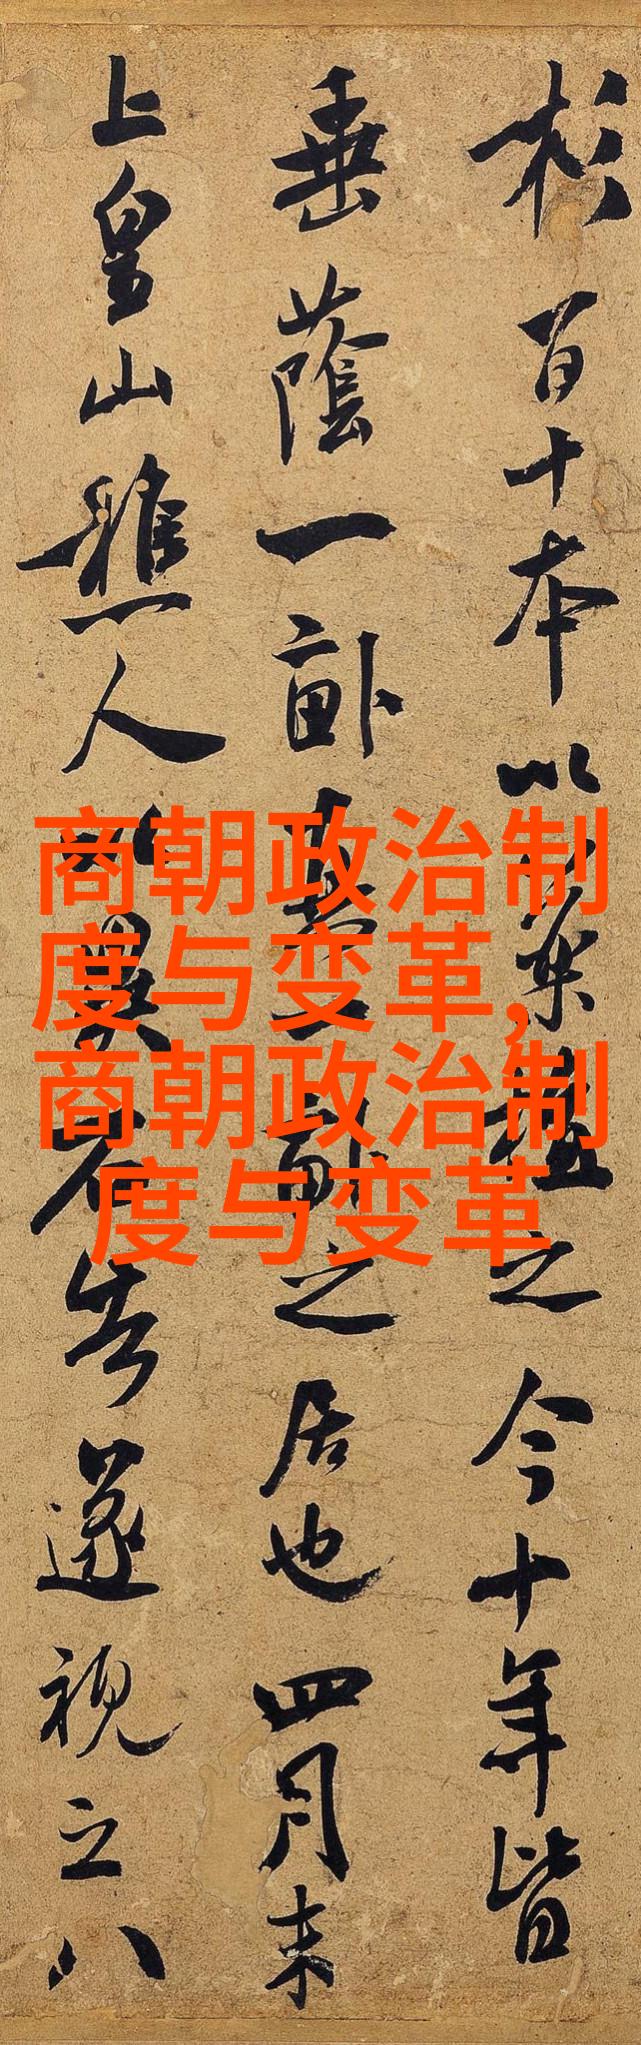 杉百十本以植之今十年皆
垂蔭一畝之居也四月末
上皇山樵人以異石告遂視之八
商朝政治制
度与变革,
商朝政治制
度与变革